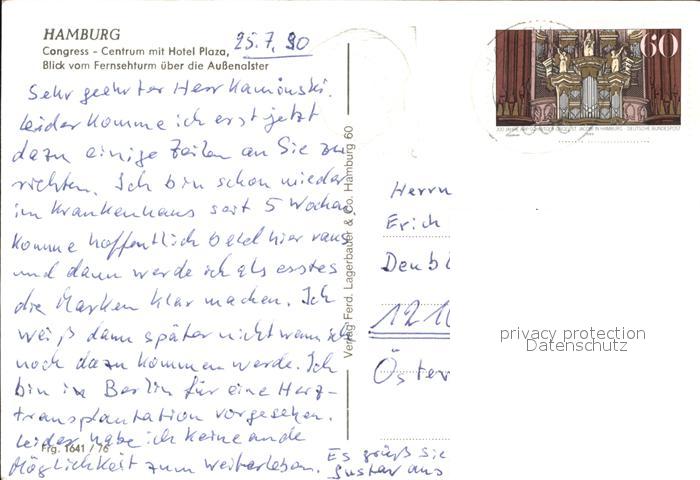 HAMBURG
Congress - Centrum mit Hotel Plaza,
Blick vom Fernsehturm über die Außenalster
25.7.90
Sehr geehrter Herr Kaminski.
leider komme ich erst jetzt
dazu einige Zeilen an Sie zu
richten. Ich bin schon wieder
im Krankenhaus seit 5 Wochen
komme hoffentlich bald hier raus
und dann werde ich als erstes
die Marken klar machen. Ich
weiß dann später nicht wann ich
noch dazu kommen werde. Ich
bin in Berlin für eine Herz-
transplantation vorgesehen.
leider habe ich keine ande
Möglichkeit zum weiterleben.
Es grüßt Sie
Gustav aus
Frg. 1641 / 76
Verlag Ferd. Lagerbauer & Co. Hamburg 60
60
300 JAHRE ARP-SCHNITGER-ORGEL ST. JACOBI IN HAMBURG · DEUTSCHE BUNDESPOST
Herrn
Erich
Denbl
121
Öster
privacy protection
Datenschutz